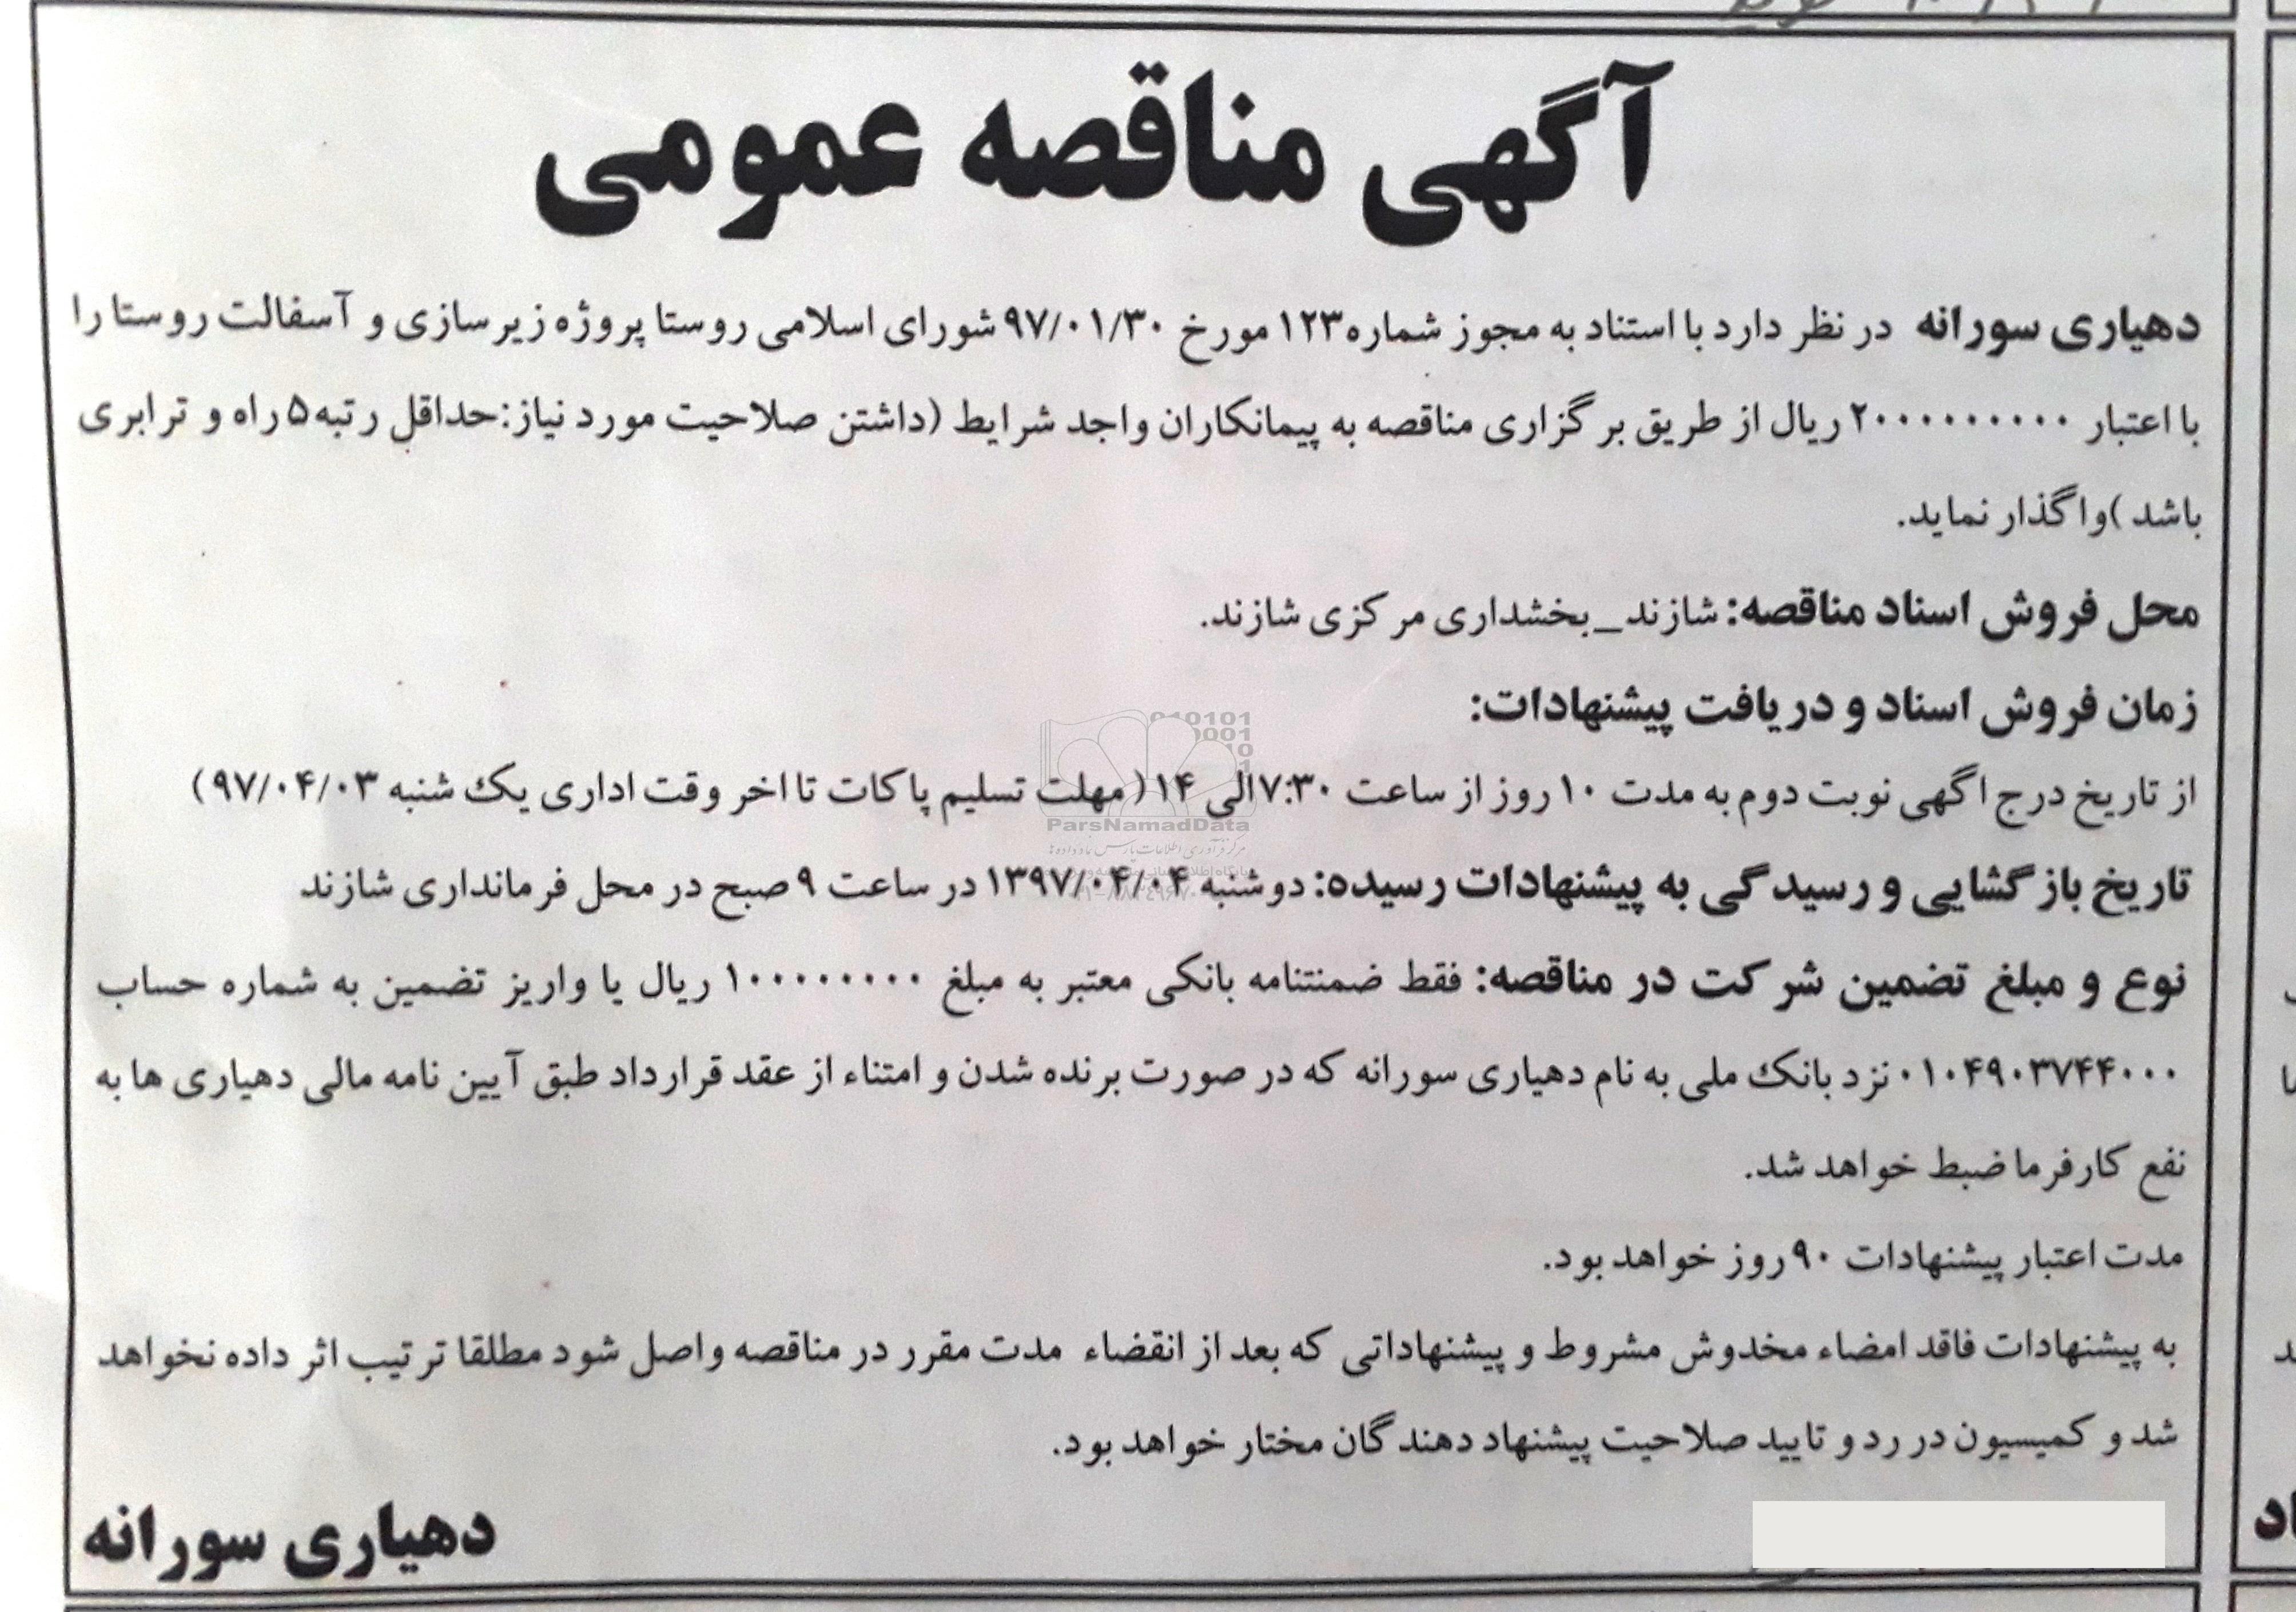 آگهی مناقصه عمومی
دهیاری سورانه در نظر دارد با استناد به مجوز شماره ۱۲۳ مورخ ۹۷/۰۱/۳۰ شورای اسلامی روستا پروژه زیرسازی و آسفالت روستا را
با اعتبار ۲۰۰۰۰۰۰۰۰۰ ریال از طریق برگزاری مناقصه به پیمانکاران واجد شرایط (داشتن صلاحیت مورد نیاز:حداقل رتبه ۵ راه و ترابری
باشد )واگذار نماید.
محل فروش اسناد مناقصه: شازند_بخشداری مرکزی شازند.
زمان فروش اسناد و دریافت پیشنهادات:
از تاریخ درج اگهی نوبت دوم به مدت ۱۰ روز از ساعت ۷:۳۰الی ۱۴ ( مهلت تسلیم پاکات تا اخر وقت اداری یک شنبه ۹۷/۰۴/۰۳)
تاریخ بازگشایی و رسیدگی به پیشنهادات رسیده: دوشنبه ۱۳۹۷/۰۴/۰۴ در ساعت ۹ صبح در محل فرمانداری شازند
نوع و مبلغ تضمین شرکت در مناقصه: فقط ضمنتنامه بانکی معتبر به مبلغ ۱۰۰۰۰۰۰۰۰ ریال یا واریز تضمین به شماره حساب
۰۱۰۴۹۰۳۷۴۴۰۰۰ نزد بانک ملی به نام دهیاری سورانه که در صورت برنده شدن و امتناء از عقد قرارداد طبق آیین نامه مالی دهیاری ها به
نفع کارفرما ضبط خواهد شد.
مدت اعتبار پیشنهادات ۹۰ روز خواهد بود.
به پیشنهادات فاقد امضاء مخدوش مشروط و پیشنهاداتی که بعد از انقضاء مدت مقرر در مناقصه واصل شود مطلقا ترتیب اثر داده نخواهد
شد و کمیسیون در رد و تایید صلاحیت پیشنهاد دهندگان مختار خواهد بود.
دهیاری سورانه
ParsNamadData
مرکز فرآوری اطلاعات پارس نماد داده ها